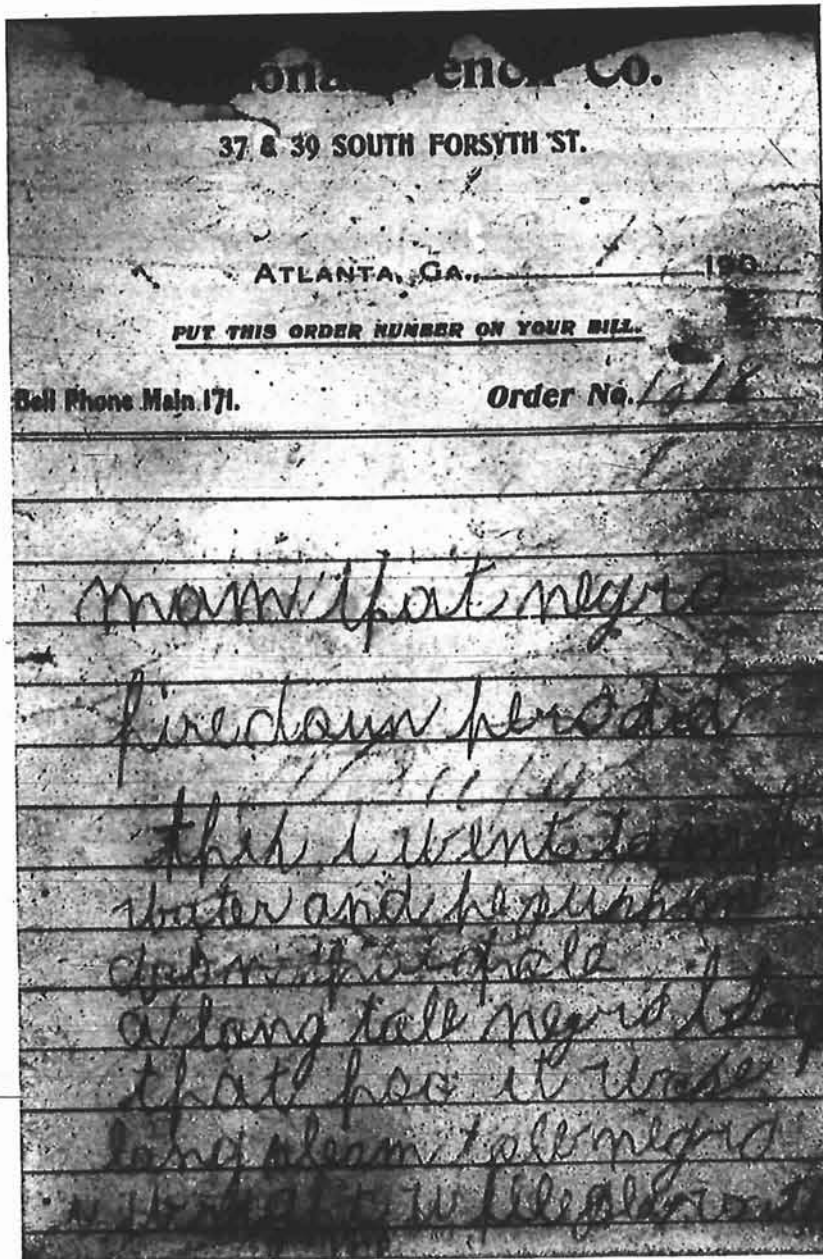 Co.
37 & 39 SOUTH FORSYTH ST.
ATLANTA, GA., 190
PUT THIS ORDER NUMBER ON YOUR BILL.
Bell Phone Main 171. Order No. 1018
mam that negro
hire doun here did
this i went to make
water and he push me
doun that hole
a long tall negro black
that hoo it wase
long sleam tall negro
i wright while play with